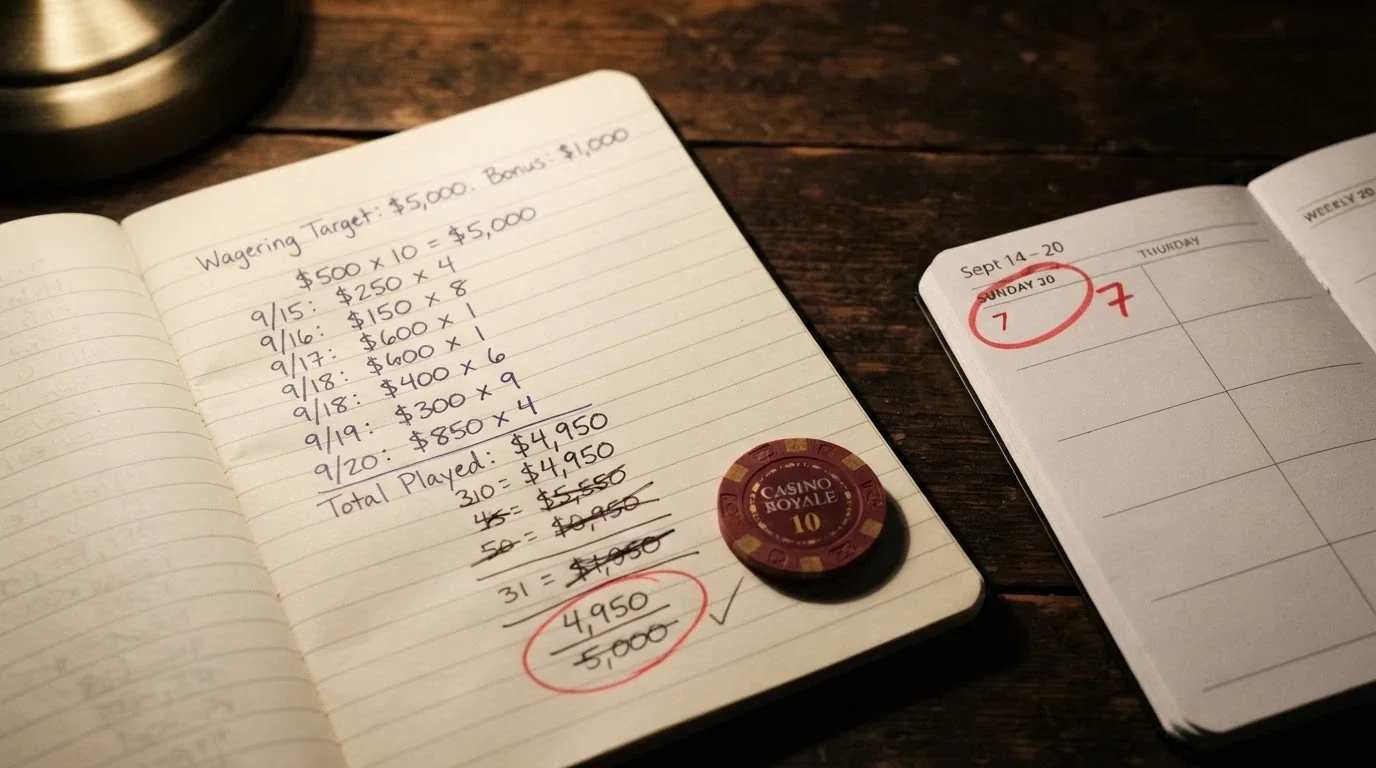 Wagering Target: $5,000. Bonus: $1,000
$500 x 10 = $5,000
9/15: $250 x 4
9/16: $150 x 8
9/17: $600 x 1
9/18: $600 x 1
9/18: $400 x 6
9/19: $300 x 9
9/20: $850 x 4
Total Played: $4,950
310 = $4,950
45 = $5,550
50 = $0,950
31 = $1,050
4,950
5,000
CASINO
ROYALE
10
Sept 14 - 20
THURDAY
SUNDAY 30
7
7
WEEKLY 20